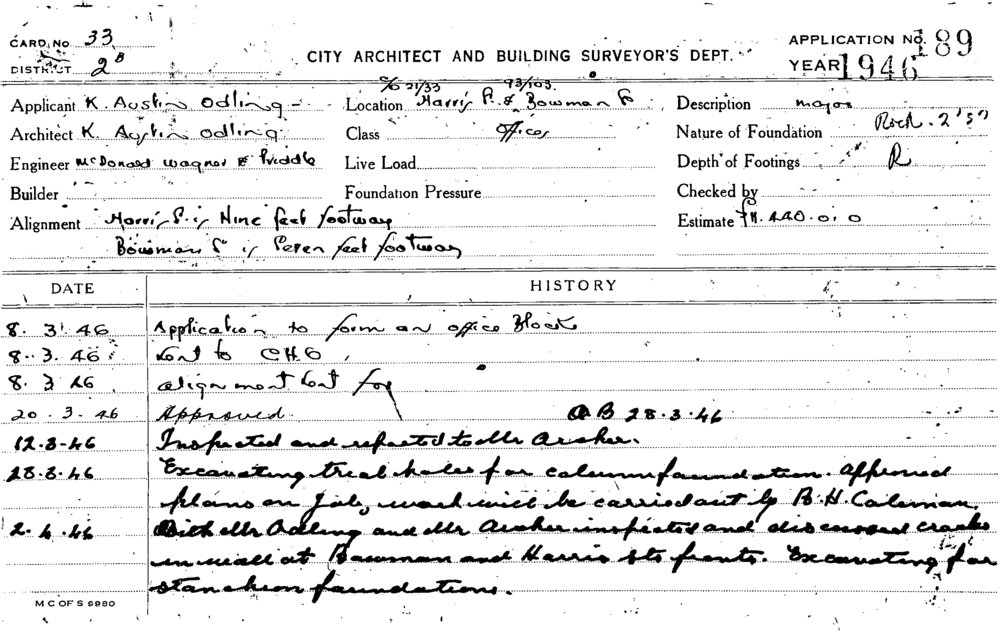 CARD No 33
DISTRICT 2B
CITY ARCHITECT AND BUILDING SURVEYOR'S DEPT.
APPLICATION No 189
YEAR 1946
Applicant K. Austin Odling
Location Harris St & Bowman St
c/o 21/33 93/103
Description major
Architect K. Austin Odling
Class Offices
Nature of Foundation Rock
Engineer McDonald Wagner & Priddle
Live Load
Depth of Footings R
Builder
Foundation Pressure
Checked by
Alignment Harris St is Nine feet footway
Estimate £11.440.0.0
Bowman St is Seven feet footway
DATE HISTORY
8. 3. 46 Application to form an office Block
8. 3. 46 Sent to CHO
8. 3. 46 alignment sent for
20. 3. 46 Approved. AB 28.3.46
12.3.46 Inspected and reported to Mr Archer.
28.3.46 Excavating trial holes for column foundation. Approved
plans on Job, work will be carried out by B.H. Coleman.
2.4.46 With Mr Odling and Mr Archer inspected and discussed cracks
in wall at Bowman and Harris Sts fronts. Excavating for
stancheon foundations.
M C OF S 9980